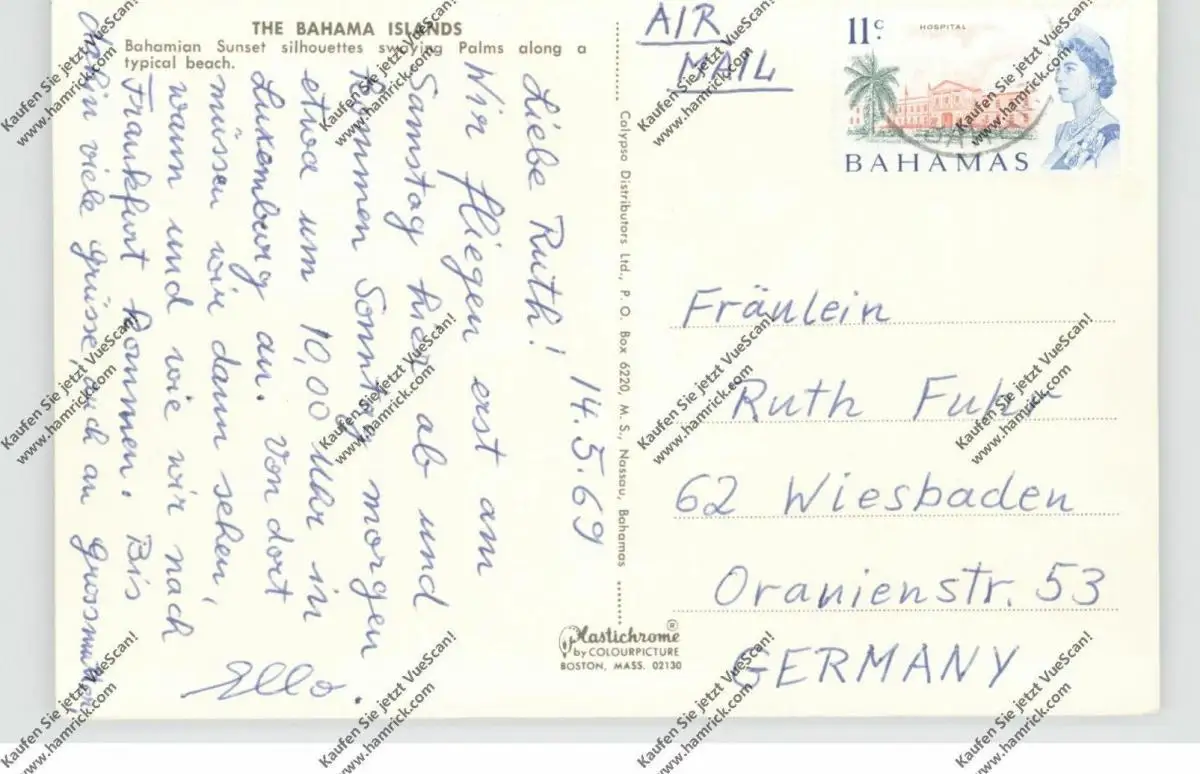 THE BAHAMA ISLANDS
Bahamian Sunset silhouettes swaying Palms along a
typical beach.
14.5.69
Liebe Ruth!
Wir fliegen erst am
Samstag hier ab und
kommen Sonntag morgen
etwa um 10,00 Uhr in
Luxemburg an. Von dort
müssen wir dann sehen,
wann und wie wir nach
Frankfurt kommen. Bis
dahin viele Grüsse, auch an Grossmutter,
Ello.
Calypso Distributors Ltd., P. O. Box 6220, M. S., Nassau, Bahamas
Plastichrome®
by COLOURPICTURE
BOSTON, MASS. 02130
AIR
MAIL
11c
HOSPITAL
BAHAMAS
Fräulein
Ruth Fuhr
62 Wiesbaden
Oranienstr. 53
GERMANY
Kaufen Sie jetzt VueScan!
www.hamrick.com